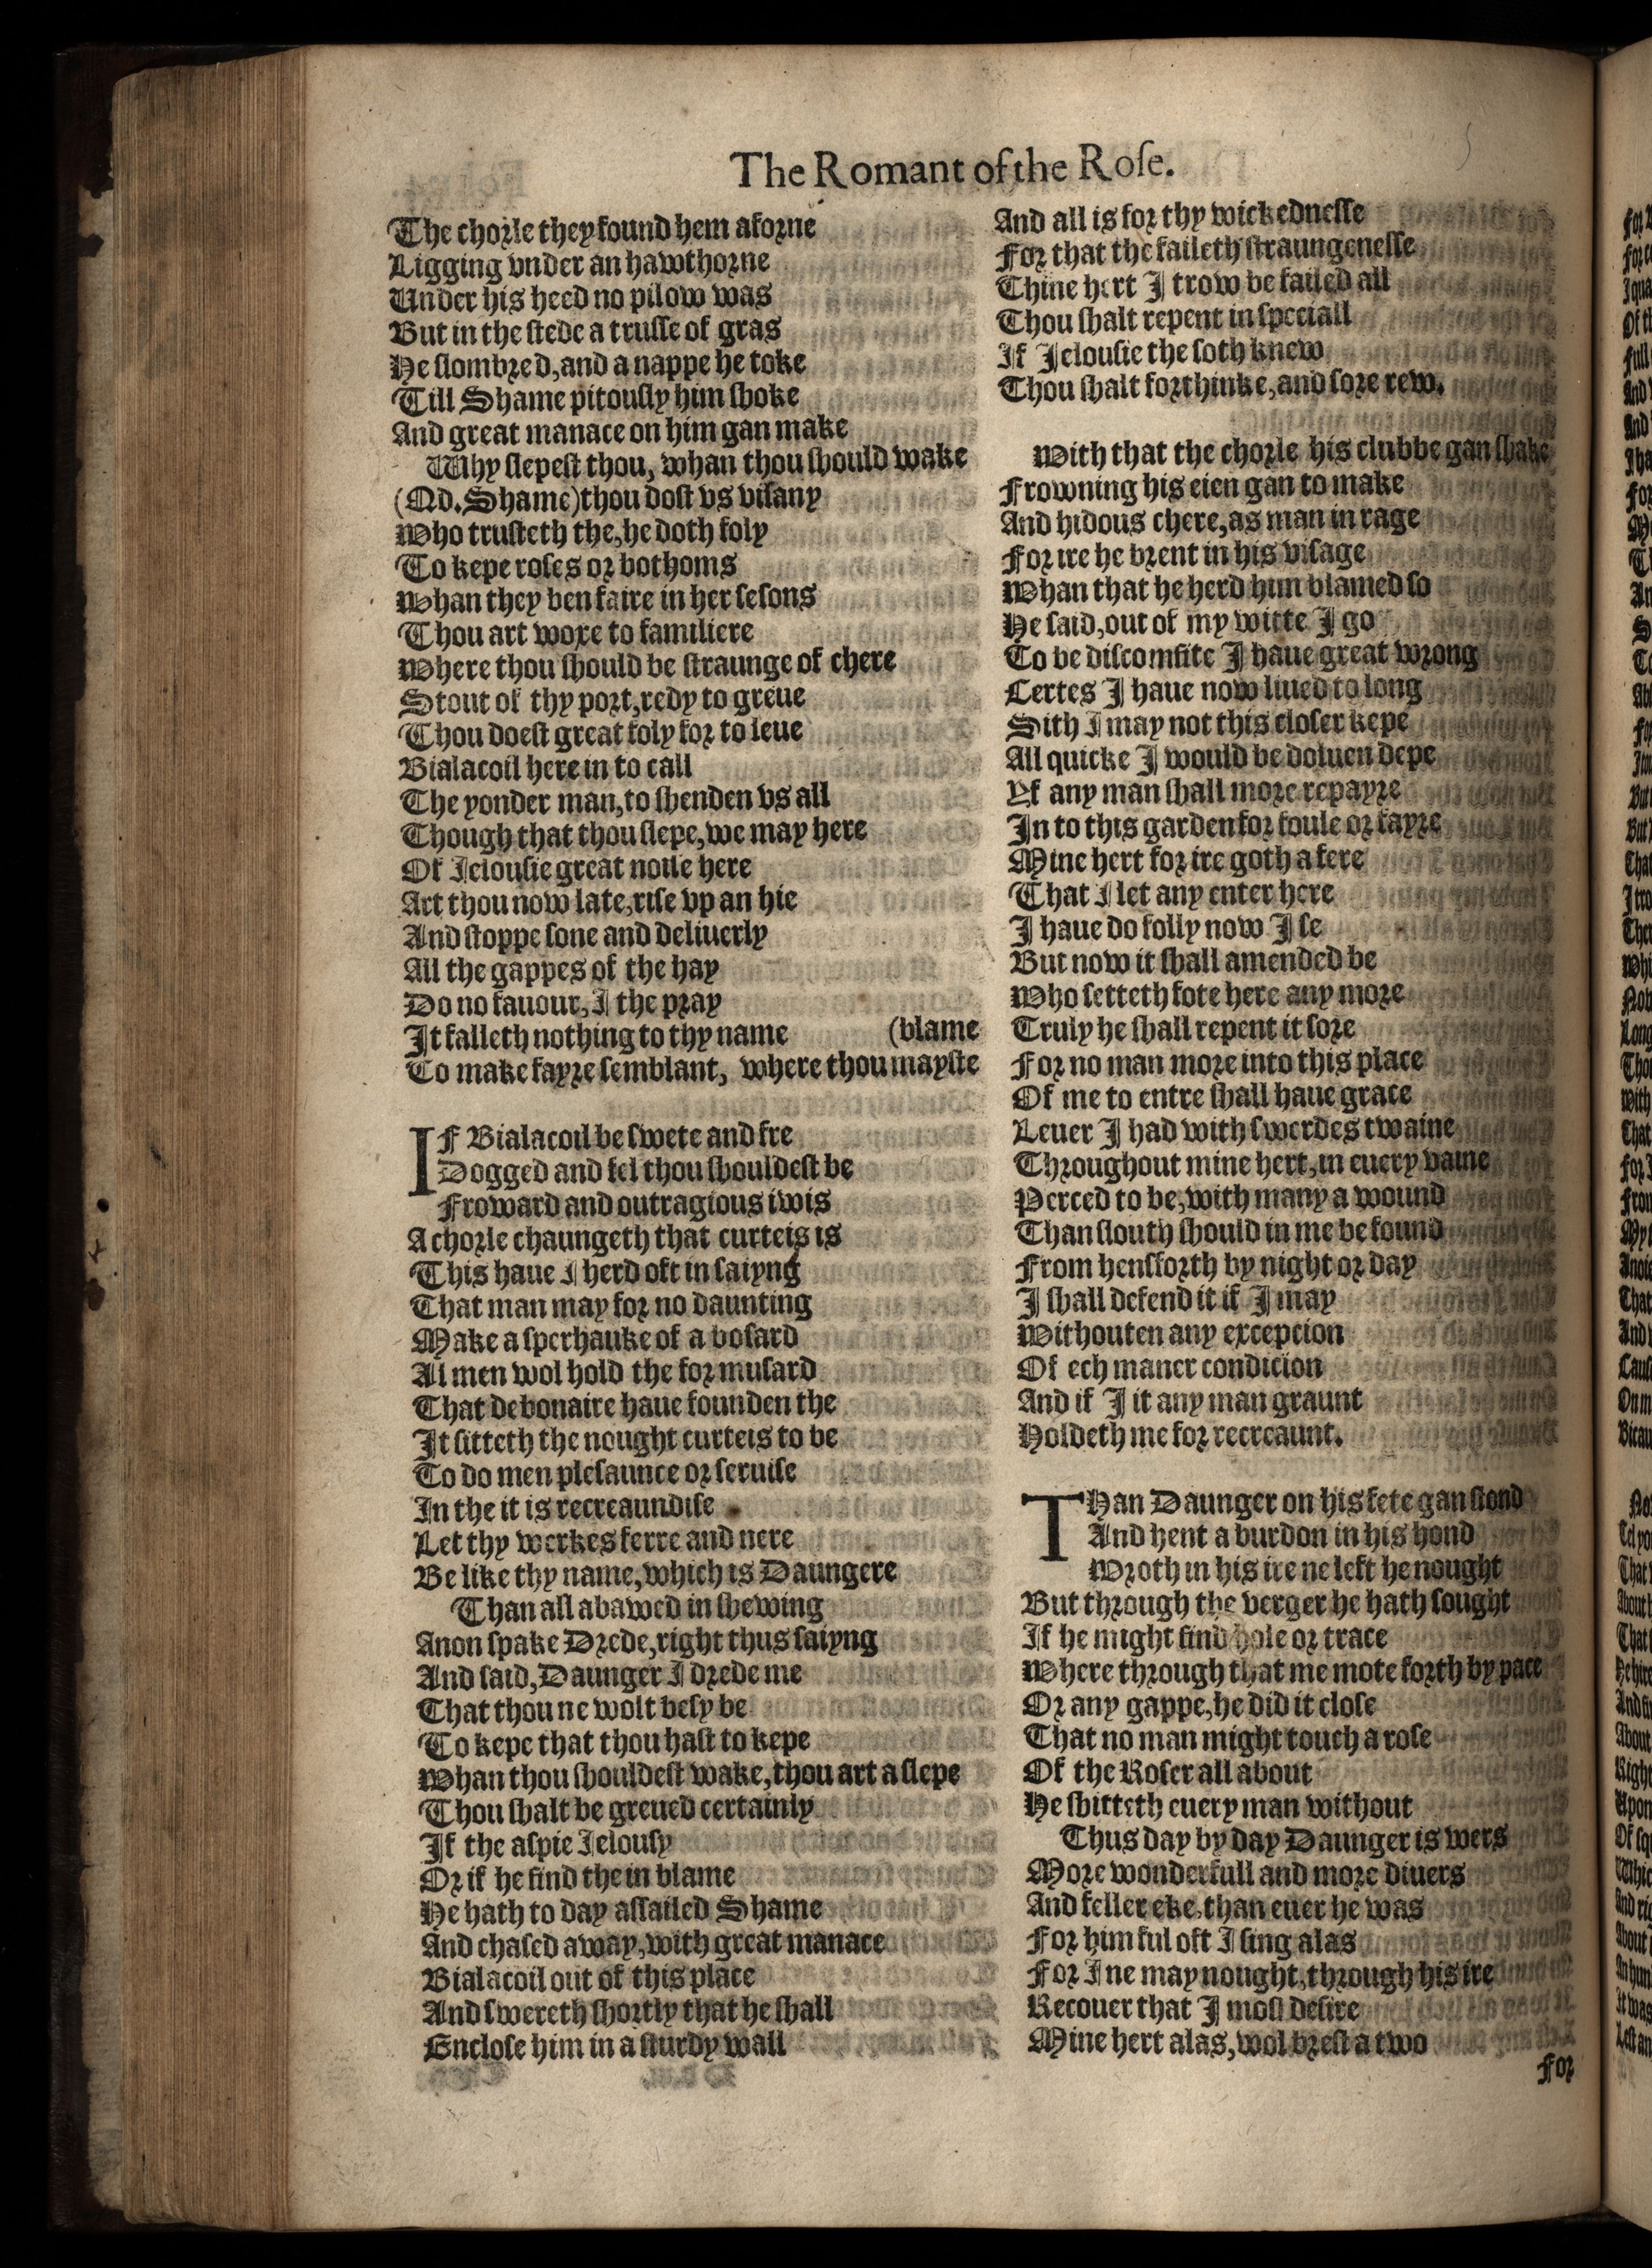 The Romant of the Rose.
The chorle they found hem aforne
Ligging vnder an hawthorne
Under his heed no pilow was
But in the stede a trusse of gras
He slombred, and a nappe he toke
Till Shame pitously him shoke
And great manace on him gan make
Why slepest thou, whan thou should wake
(Qd. Shame) thou dost vs vilany
Who trusteth the, he doth foly
To kepe roses or bothoms
Whan they ben faire in her sesons
Thou art woxe to familiere
Where thou should be straunge of chere
Stout of thy port, redy to greue
Thou doest great foly for to leue
Bialacoil here in to call
The yonder man, to shenden vs all
Though that thou slepe, we may here
Of Jelousie great noise here
Art thou now late, rise vp an hie
And stoppe sone and deliuerly
All the gappes of the hay
Do no fauour, I the pray
It falleth nothing to thy name (blame
To make fayre semblant, where thou mayste
IF Bialacoil be swete and fre
Dogged and fel thou shouldest be
Froward and outragious iwis
A chorle chaungeth that curteis is
This haue I herd oft in saiyng
That man may for no daunting
Make a sperhauke of a bosard
Al men wol hold the for musard
That debonaire haue founden the
It sitteth the nought curteis to be
To do men plesaunce or seruise
In the it is recreaundise
Let thy werkes ferre and nere
Be like thy name, which is Daungere
Than all abawed in shewing
Anon spake Drede, right thus saiyng
And said, Daunger I drede me
That thou ne wolt besy be
To kepe that thou hast to kepe
Whan thou shouldest wake, thou art a slepe
Thou shalt be greued certainly
If the aspie Jelousy
Or if he find the in blame
He hath to day assailed Shame
And chased away, with great manace
Bialacoil out of this place
And swereth shortly that he shall
Enclose him in a sturdy wall
And all is for thy wickednesse
For that the faileth straungenesse
Thine hert I trow be failed all
Thou shalt repent in speciall
If Jelousie the soth knew
Thou shalt forthinke, and sore rew.
With that the chorle his clubbe gan shake
Frowning his eien gan to make
And hidous chere, as man in rage
For ire he brent in his visage
Whan that he herd him blamed so
He said, out of my witte I go
To be discomfite I haue great wrong
Certes I haue now liued to long
Sith I may not this closer kepe
All quicke I would be doluen depe
Yf any man shall more repayre
In to this garden for foule or fayre
Mine hert for ire goth a fere
That I let any enter here
I haue do folly now I se
But now it shall amended be
Who setteth fote here any more
Truly he shall repent it sore
For no man more into this place
Of me to entre shall haue grace
Leuer I had with swerdes twaine
Throughout mine hert, in euery vaine
Perced to be, with many a wound
Than slouth should in me be found
From hensforth by night or day
I shall defend it if I may
Withouten any excepcion
Of ech maner condicion
And if I it any man graunt
Holdeth me for recreaunt.
THan Daunger on his fete gan stond
And hent a burdon in his hond
Wroth in his ire ne left he nought
But through the verger he hath sought
If he might find hole or trace
Where through that me mote forth by pace
Or any gappe, he did it close
That no man might touch a rose
Of the Roser all about
He shitteth euery man without
Thus day by day Daunger is wers
More wonderfull and more diuers
And feller eke, than euer he was
For him ful oft I sing alas
For I ne may nought, through his ire
Recouer that I most desire
Mine hert alas, wol brest a two
For